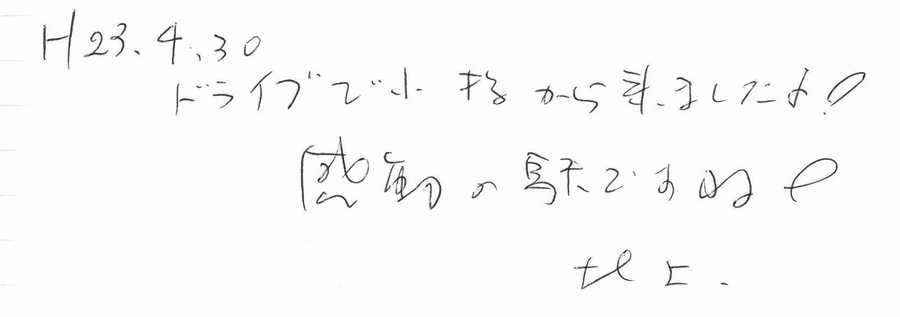 H23.4.30
ドライブで小樽から来ましたよ!
感動の駅ですね!